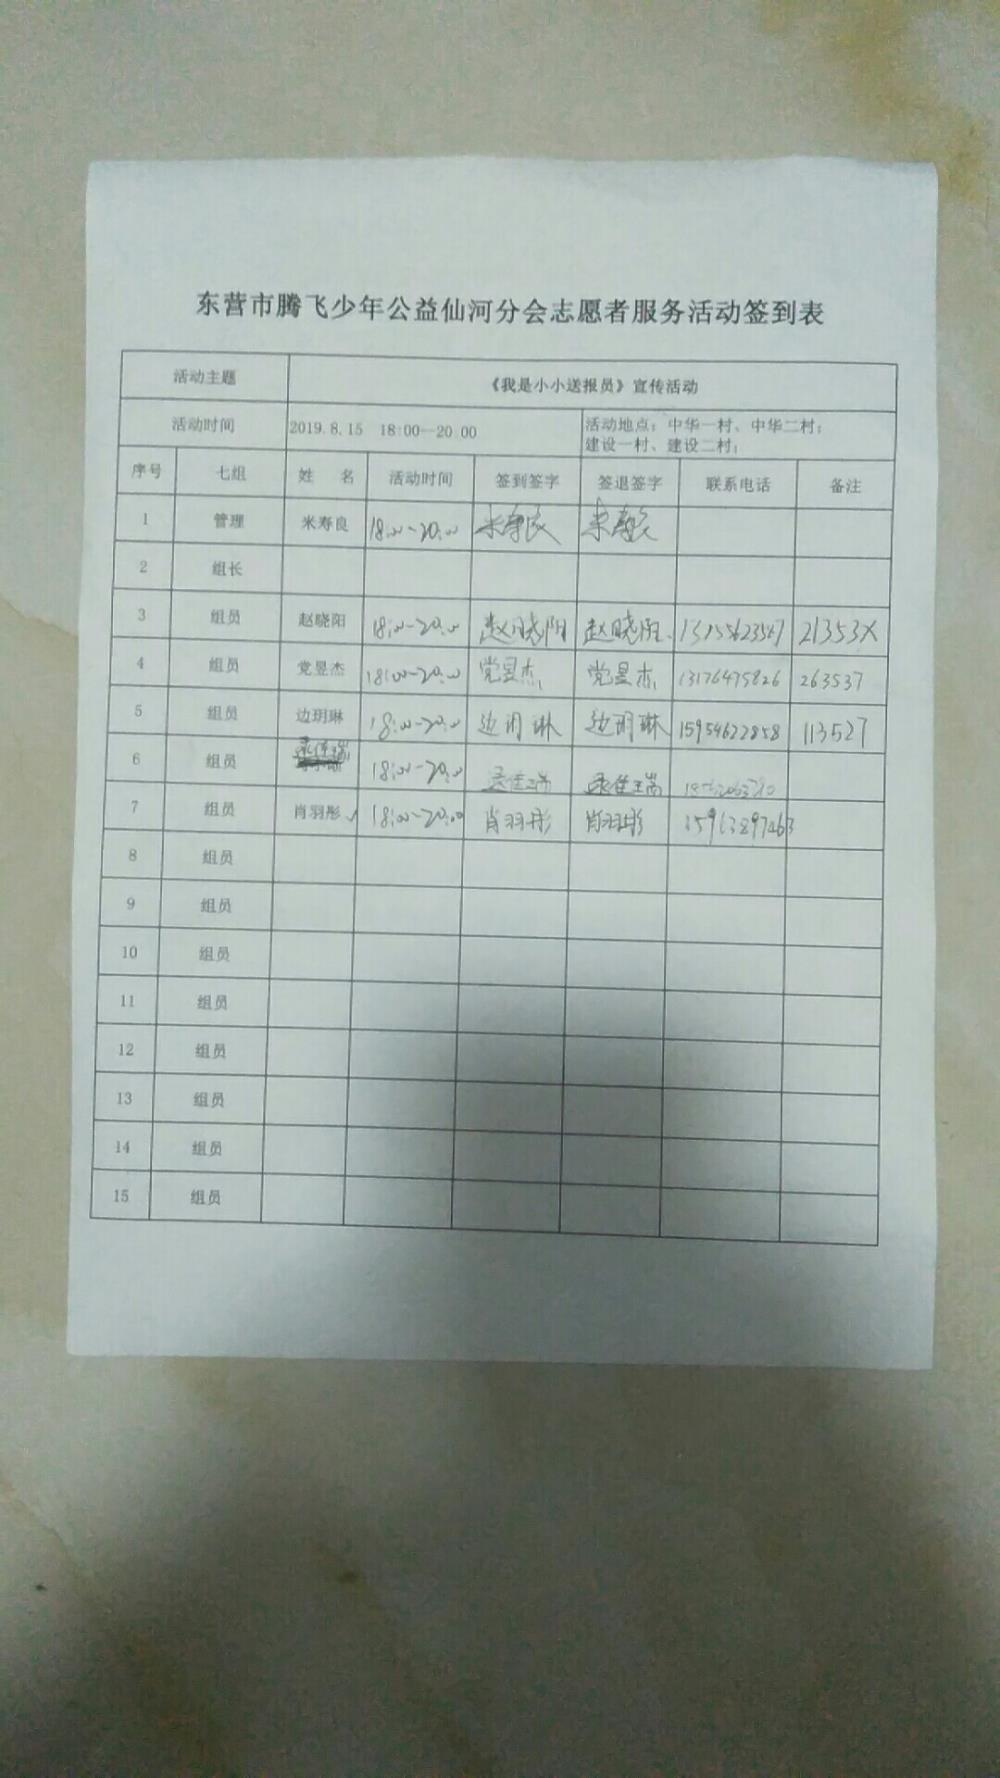 东营市腾飞少年公益仙河分会志愿者服务活动签到表
活动主题 《我是小小送报员》宣传活动
活动时间 2019.8.15 18:00—20:00 活动地点：中华一村、中华二村；
建设一村、建设二村；
序号 七组 姓 名 活动时间 签到签字 签退签字 联系电话 备注
1 管理 米寿良 18:00-20:00 米寿良 米寿良
2 组长
3 组员 赵晓阳 18:00-20:00 赵晓阳 赵晓阳 21353X
4 组员 党昱杰 18:00-20:00 党昱杰 党昱杰 13176475826 263537
5 组员 边玥琳 18:00-20:00 边玥琳 边玥琳 15954622858 113527
6 组员 18:00-20:00
7 组员 肖羽彤 18:00-20:00 肖羽彤 肖羽彤
8 组员
9 组员
10 组员
11 组员
12 组员
13 组员
14 组员
15 组员